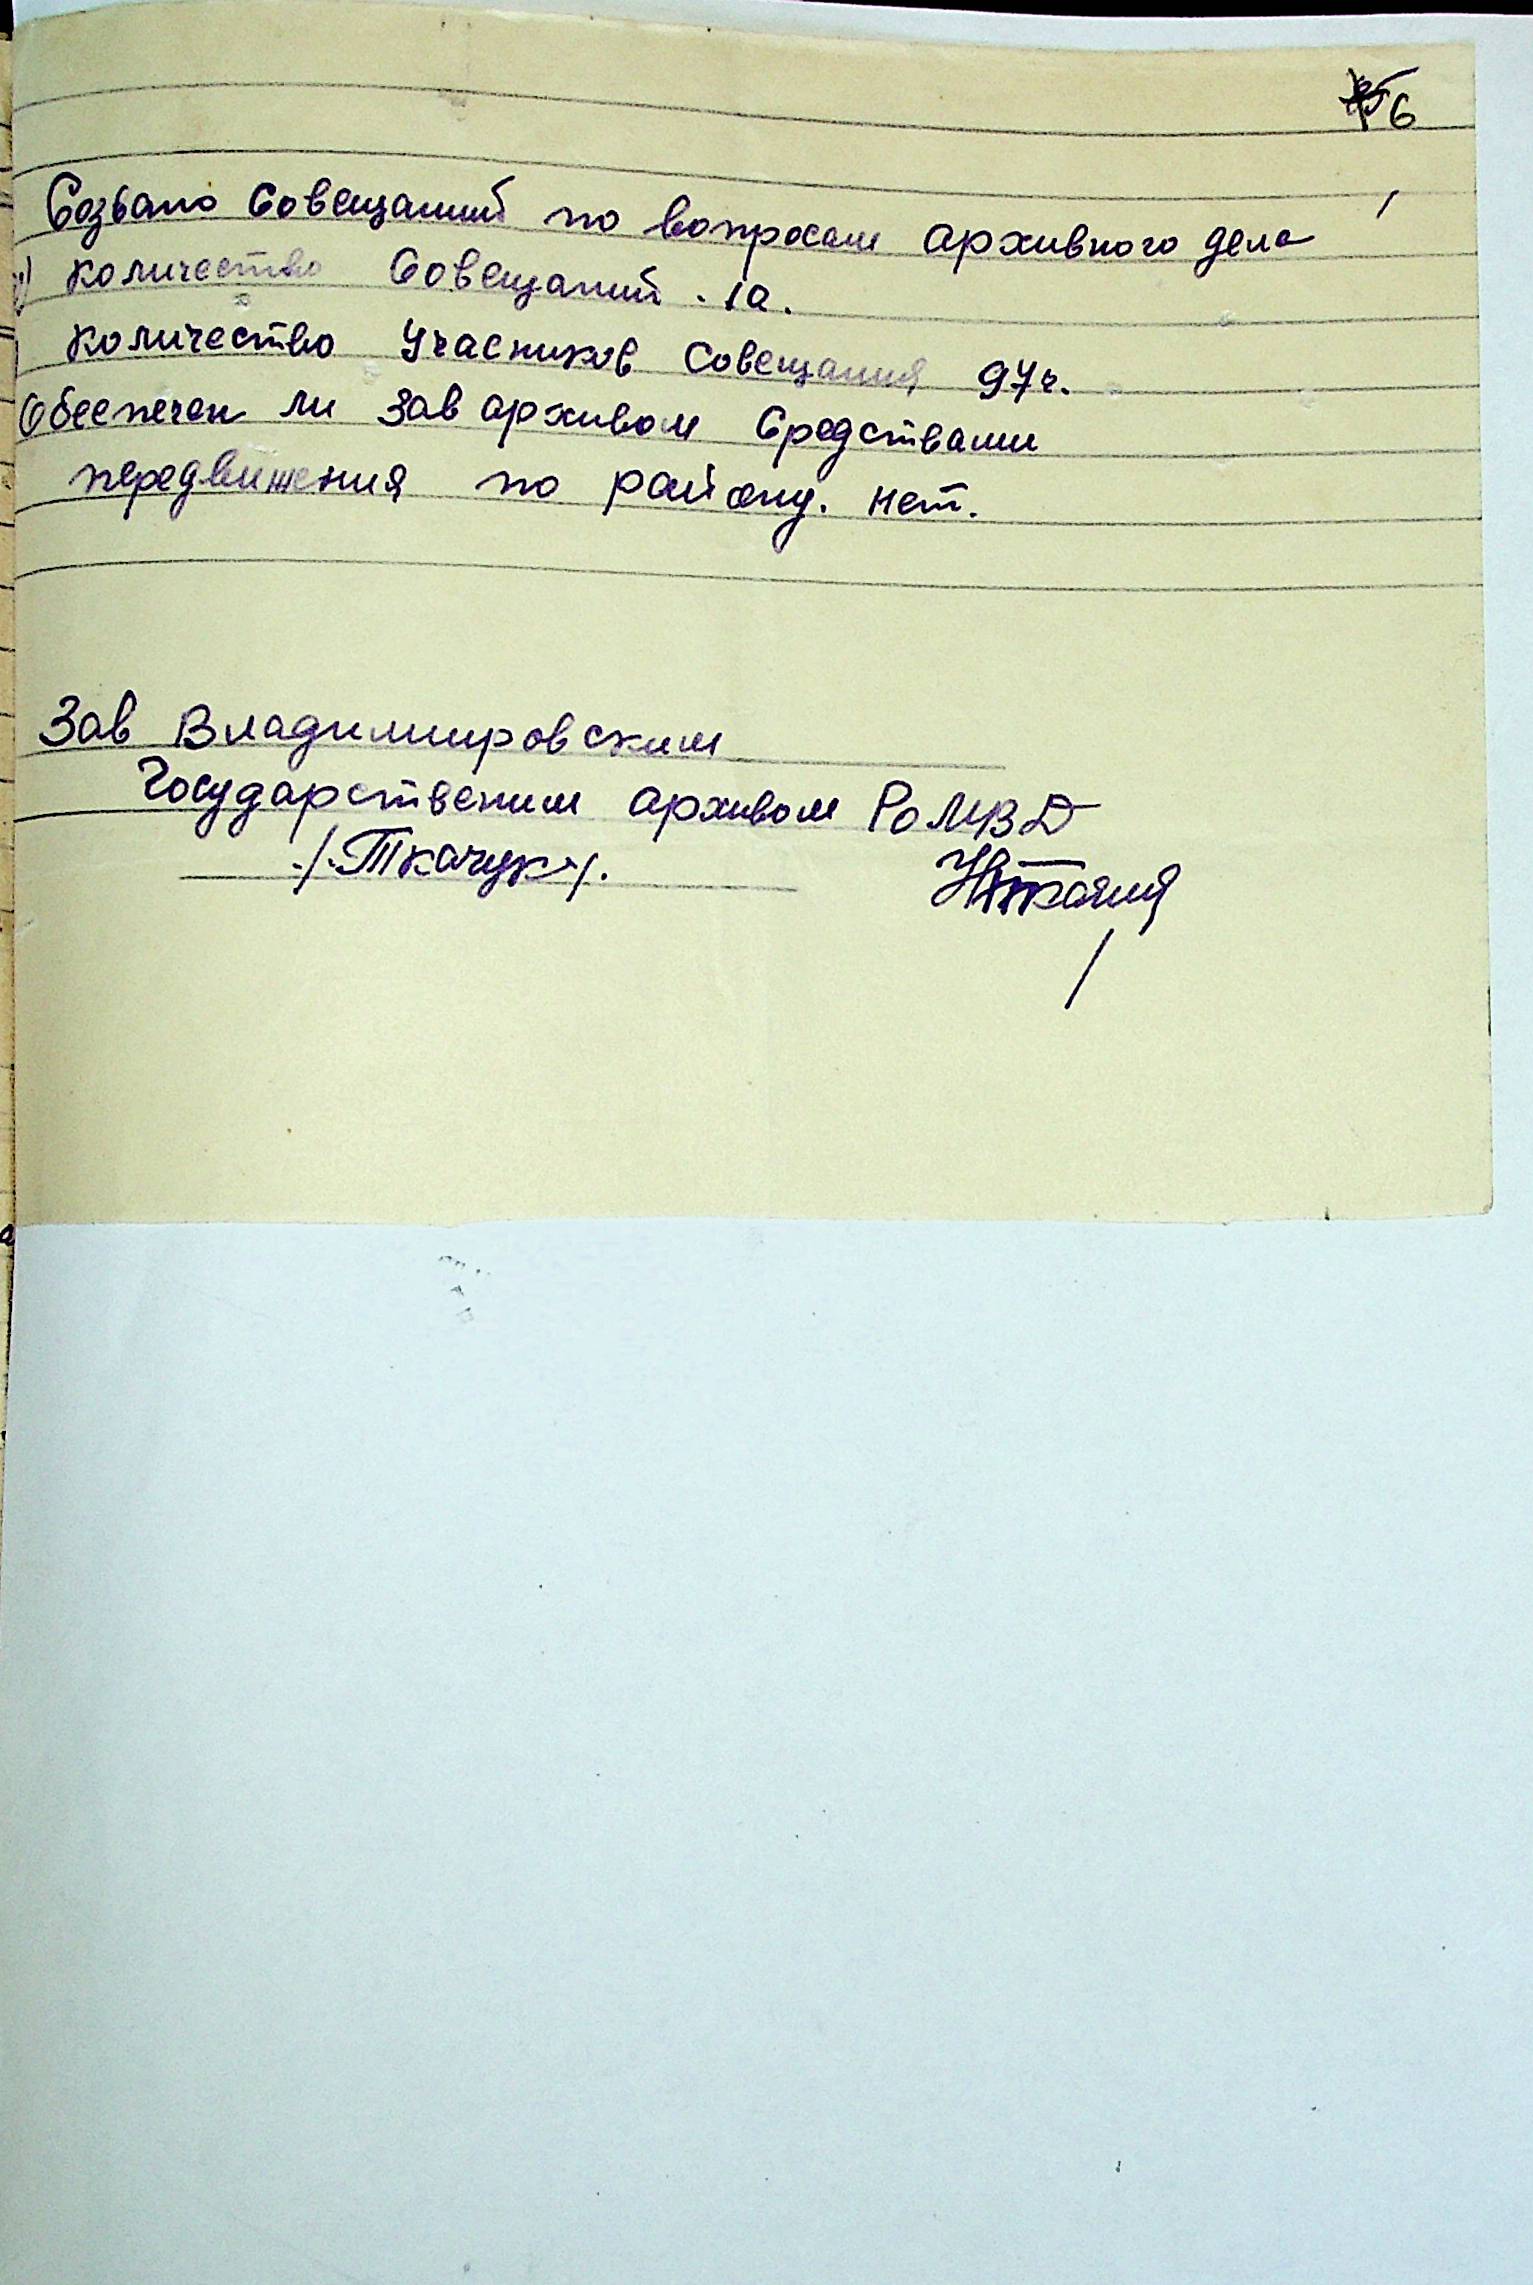 6
Созвано Совещаний по вопросам архивного дела
количество Совещаний . 1а.
количество Учасников Совещания 97ч.
Обеспечен ли Зав архивом Средствами
передвижения по району. нет.
Зав Владимировским
Государственим архивом РоМВД
./.Ткачук./.